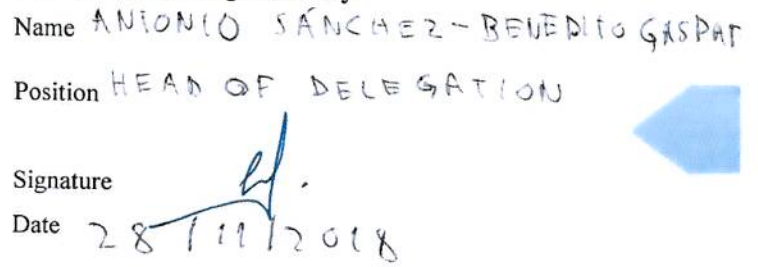 Name ANTONIO SÁNCHEZ-BENEDITO GASPAR
Position HEAD OF DELEGATION
Signature
Date 28/11/2018